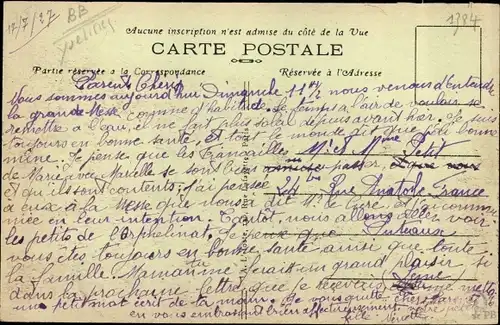 12/7/27
BB
Yvelines
1784
Aucune inscription n'est admise du côté de la Vue
CARTE POSTALE
Partie réservée a la Correspondance
Réservée à l'Adresse
Parents Chéris
Nous sommes aujourd'hui Dimanche 11 h 1/2 nous venons d'entendre
la grande Messe comme d'habitude. Le temps a l'air de vouloir se
remettre à l'eau, il ne fait plus soleil depuis avant hier. Je suis
toujours en bonne santé, et tout le monde dit que j'ai bonne
mine. Je pense que les fiançailles
de Marie avec Marcelle se sont bien passer
et qu'ils sont contents, j'ai pensée
à eux à la Messe que nous a dit Mr le Curé et j'ai commu-
niée en leur intention. Tantôt, nous allons aller voir
les petits de l'Orphelinat. Je pense que
vous êtes toujours en bonne santé ainsi que toute
la famille. Maman me ferait un grand plaisir si
dans la prochaine lettre que je recevrai
une petit mot écrit de ta main. Je vous quitte chers parents
en vous embrassant bien affectueusement. Votre petite
fille
Mr & Mme Petit
Rue Anatole France
Puteaux
Seine